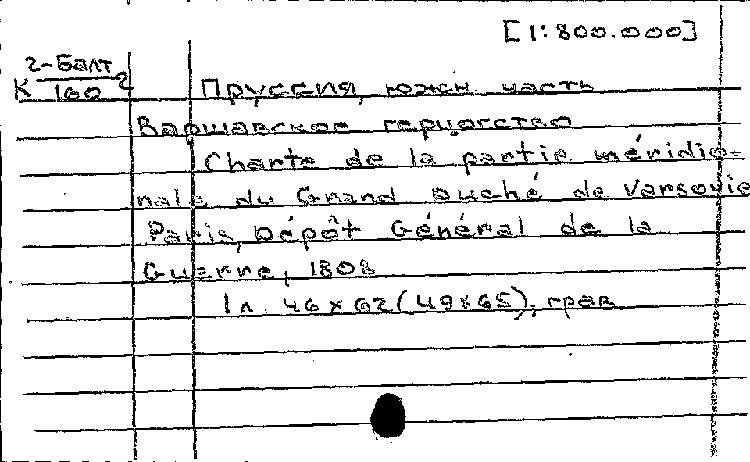 [1:800.000]
2-Балт
К 160 2 Пруссия, южн. часть
Варшавское герцогство
Charte de la partie méridio=
nale du Grand Duché de Varsovie
Paris, Dépôt Général de la
Guerre, 1808
1 л. 46 x 62 (49x65), грав